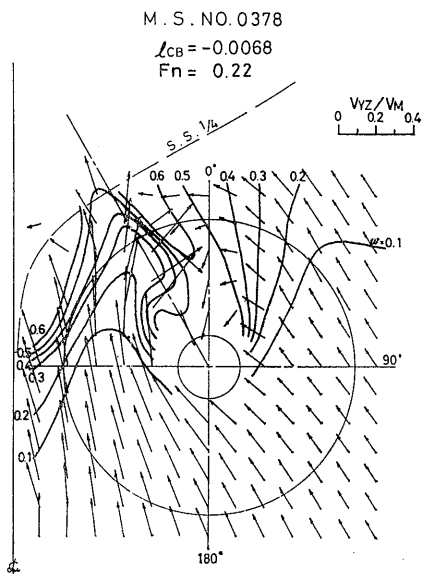 M.S.NO.0378
ℓCB = -0.0068
Fn = 0.22
VYZ/VM
0 0.2 0.4
S.S. 1/4
0.6 0.5 0° 0.4 0.3 0.2
ω=0.1
0.6
0.5
0.4
0.3
90°
0.2
0.1
180°
℄